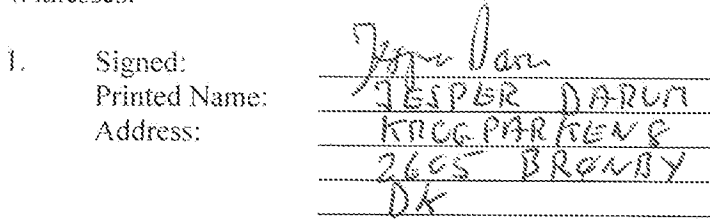 1. Signed:
Printed Name: JESPER DARUM
Address: KROGPARKEN 8
2605 BRØNDBY
DK